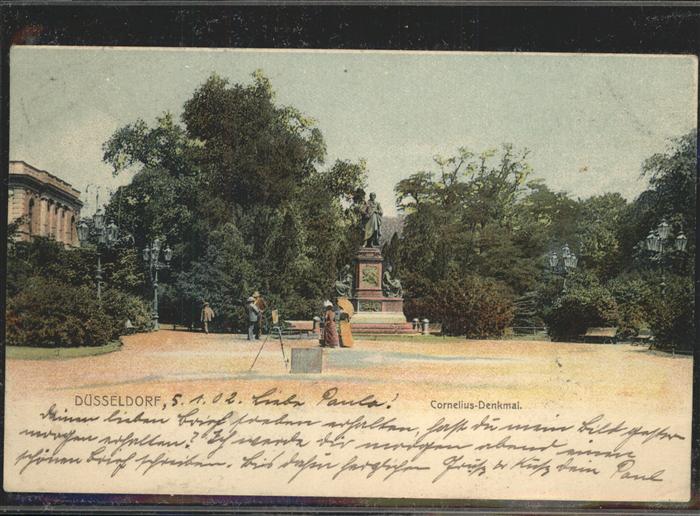 DÜSSELDORF, 5.1.02. Liebe Paula!
Cornelius-Denkmal.
Deinen lieben Brief soeben erhalten, hast du mein Bild gestern
morgen erhalten? Ich werde dir morgen abend einen
schönen Brief schreiben. Bis dahin herzlichen Gruß u Kuß dein Paul